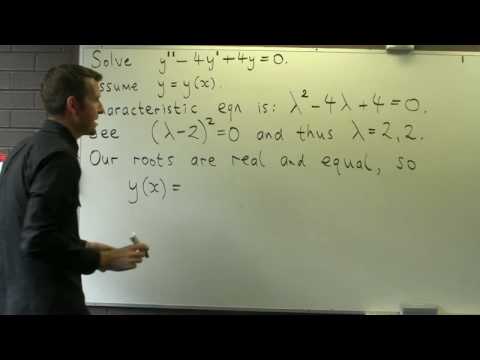 Solve y'' - 4y' + 4y = 0.
Assume y = y(x).
characteristic eqn is: λ² - 4λ + 4 = 0.
See (λ-2)² = 0 and thus λ = 2, 2.
Our roots are real and equal, so
y(x) =